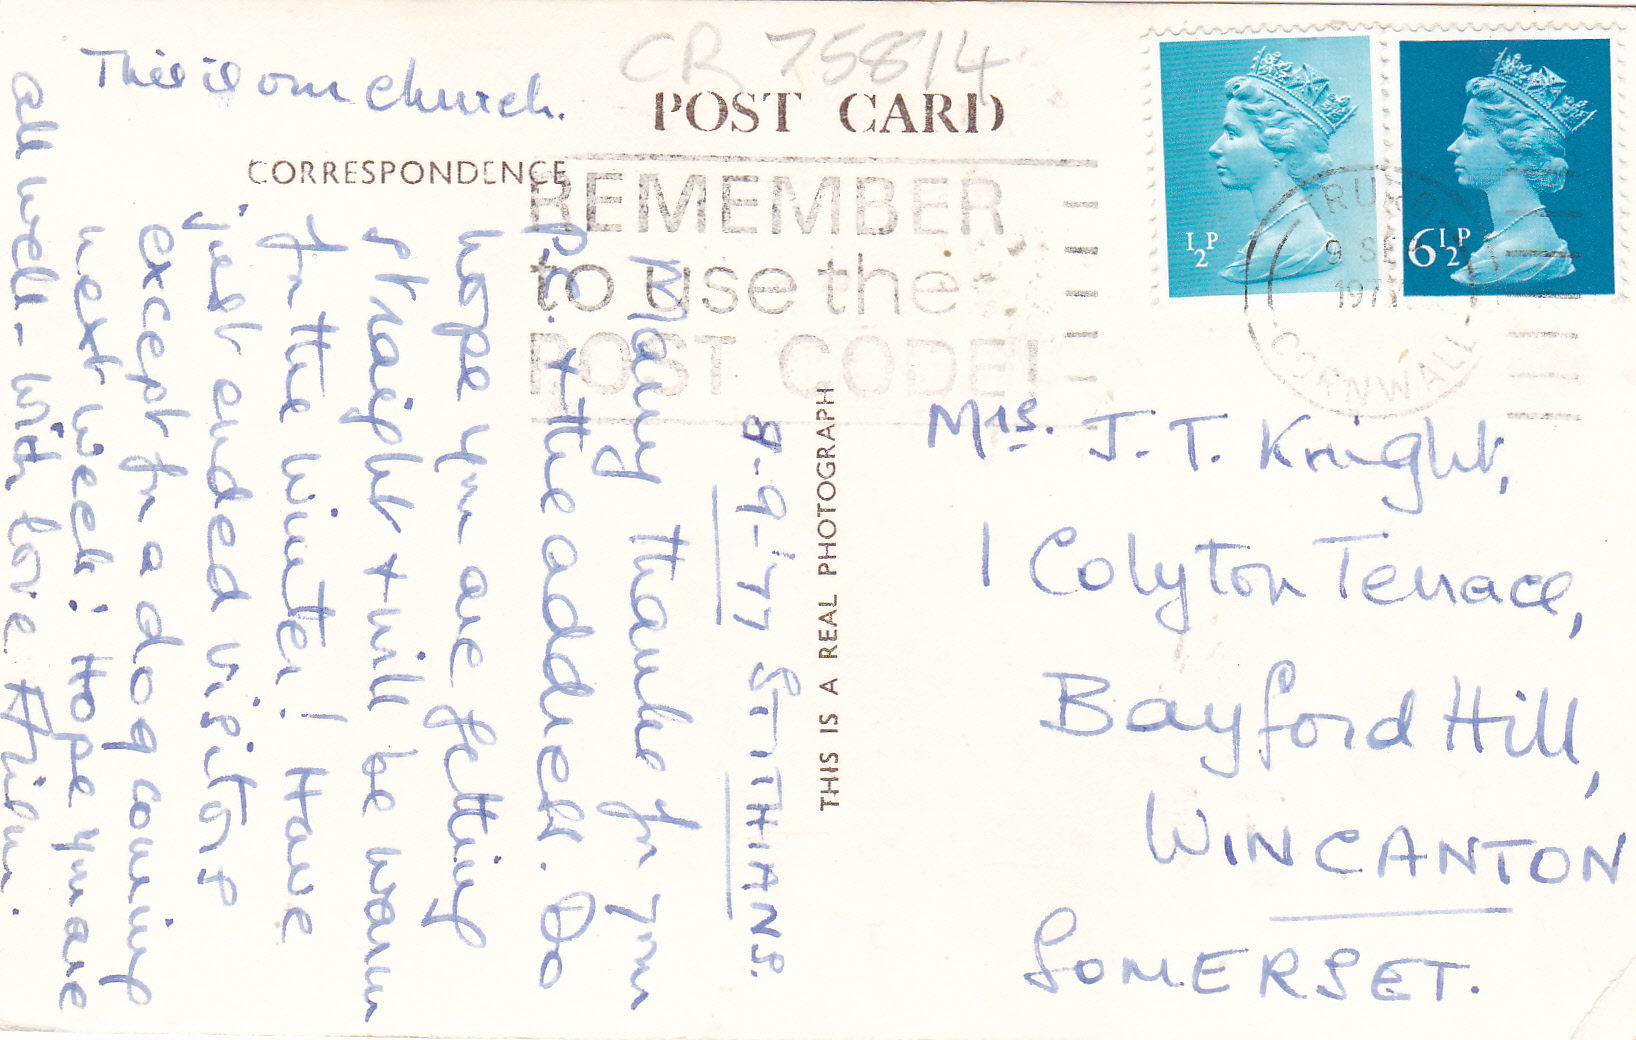 This is our church.
CR 75814
POST CARD
CORRESPONDENCE
REMEMBER
to use the
POST CODE!
½P
6½P
9 SE
197
CORNWALL
THIS IS A REAL PHOTOGRAPH
8-9-'77 STITHIANS.
Many thanks for your
P.C. & the address. Do
hope you are getting
straight & will be warm
for the winter! Have
just ended visitors
except for a dog coming
next week! Hope you are
all well - With love
Mrs. J. T. Knight,
1 Colyton Terrace,
Bayford Hill,
WINCANTON
SOMERSET.